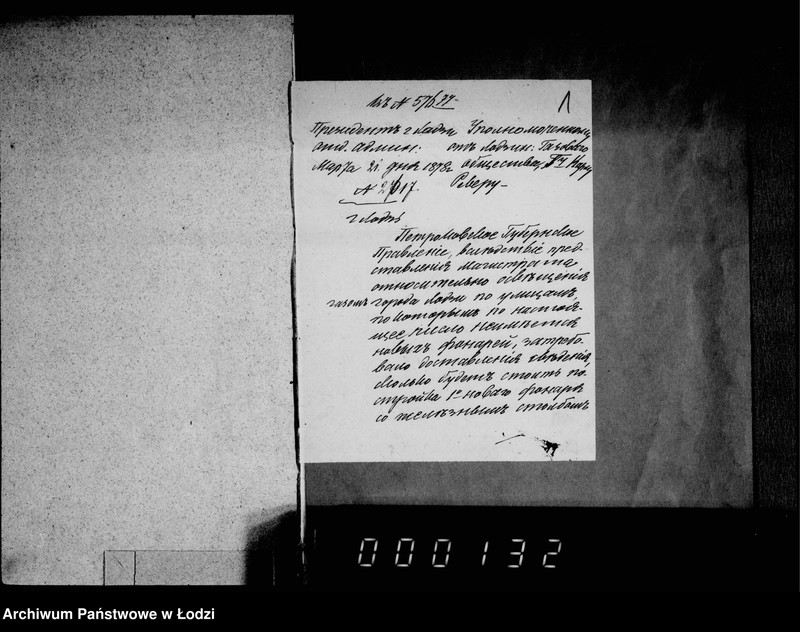 къ N 576/77
1
Президентъ г. Лодзи Уполномоченному
отд. админ: отъ Лодзин: Газоваго
Марта 21 дня 1878 г. общества,
N 2017. Реверу
г. Лодзь
Петроковское Губернское
Правленіе, вслѣдствіе пред-
ставленія магистрата
относительно освѣщенія
газомъ города Лодзи по улицамъ,
по которымъ по настоя-
щее число неимѣется
новыхъ фонарей, затребо-
вало доставленія свѣденія,
сколько будетъ стоить по-
стройка 1го новаго фонаря
со желѣзнымъ столбомъ
000132
Archiwum Państwowe w Łodzi